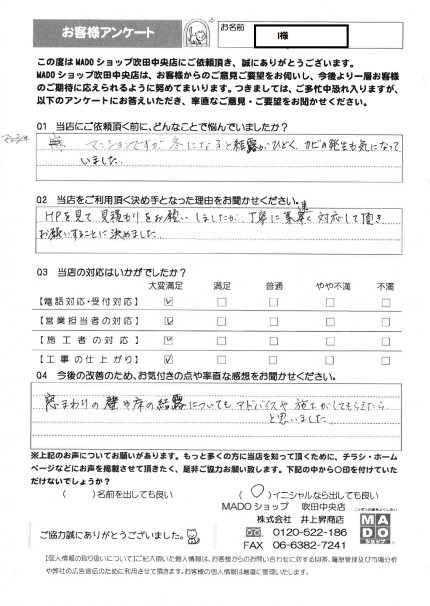 お客様アンケート
お名前
I様
この度は MADO ショップ吹田中央店にご依頼頂き、誠にありがとうございます。
MADO ショップ吹田中央店は、お客様からのご意見ご要望をお伺いし、今後より一層お客様
のご期待に応えられるように努めてまいります。つきましては、ご多忙中恐れ入りますが、
以下のアンケートにお答えいただき、率直なご意見・ご要望をお聞かせください。
Q1 当店にご依頼頂く前に、どんなことで悩んでいましたか？
マンションですが冬になると結露がひどく、カビの発生も気になって
いました。
Q2 当店をご利用頂く決め手となった理由をお聞かせください。
HPを見て見積もりをお願いしましたが、丁寧に素早く対応して頂き
お願いすることに決めました。
Q3 当店の対応はいかがでしたか？
大変満足 満足 普通 やや不満 不満
【電話対応・受付対応】
【営業担当者の対応】
【施工者の対応】
【工事の仕上がり】
Q4 今後の改善のため、お気付きの点や率直な感想をお聞かせください。
窓まわりの壁や床の結露についてもアドバイスや施工がしてもらえたら
と思いました
※上記のお声についてお願いがあります。もっと多くの方に当店を知って頂くために、チラシ・ホーム
ページなどにお声を掲載させて頂きたく、是非ご協力お願い致します。下記の中から〇印を付けていた
だけないでしょうか？
( )名前を出しても良い (〇)イニシャルなら出しても良い
MADO ショップ 吹田中央店
株式会社 井上昇商店
ご協力誠にありがとうございました。
0120-522-186
FAX 06-6382-7241
ニッポンの窓を良くしたい!
MADO
ショップ
【個人情報の取り扱いについて】ご記入頂いた個人情報は、お客様からのお問い合わせに対する回答、履歴管理及び市場分析
や弊社の広告宣伝のために利用させて頂きます。お客様の個人情報は厳重に管理いたします。